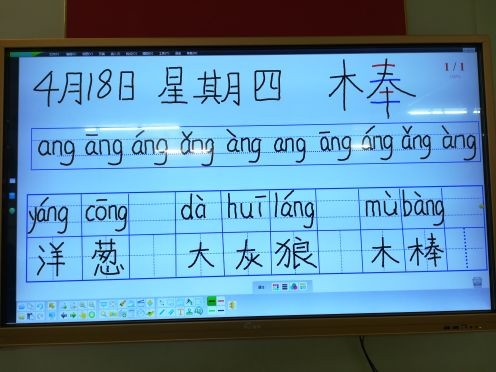 4月18日 星期四 木棒
1/1
ang āng áng ǎng àng ang āng áng ǎng àng
yáng cōng dà huī láng mù bàng
洋 葱 大 灰 狼 木 棒